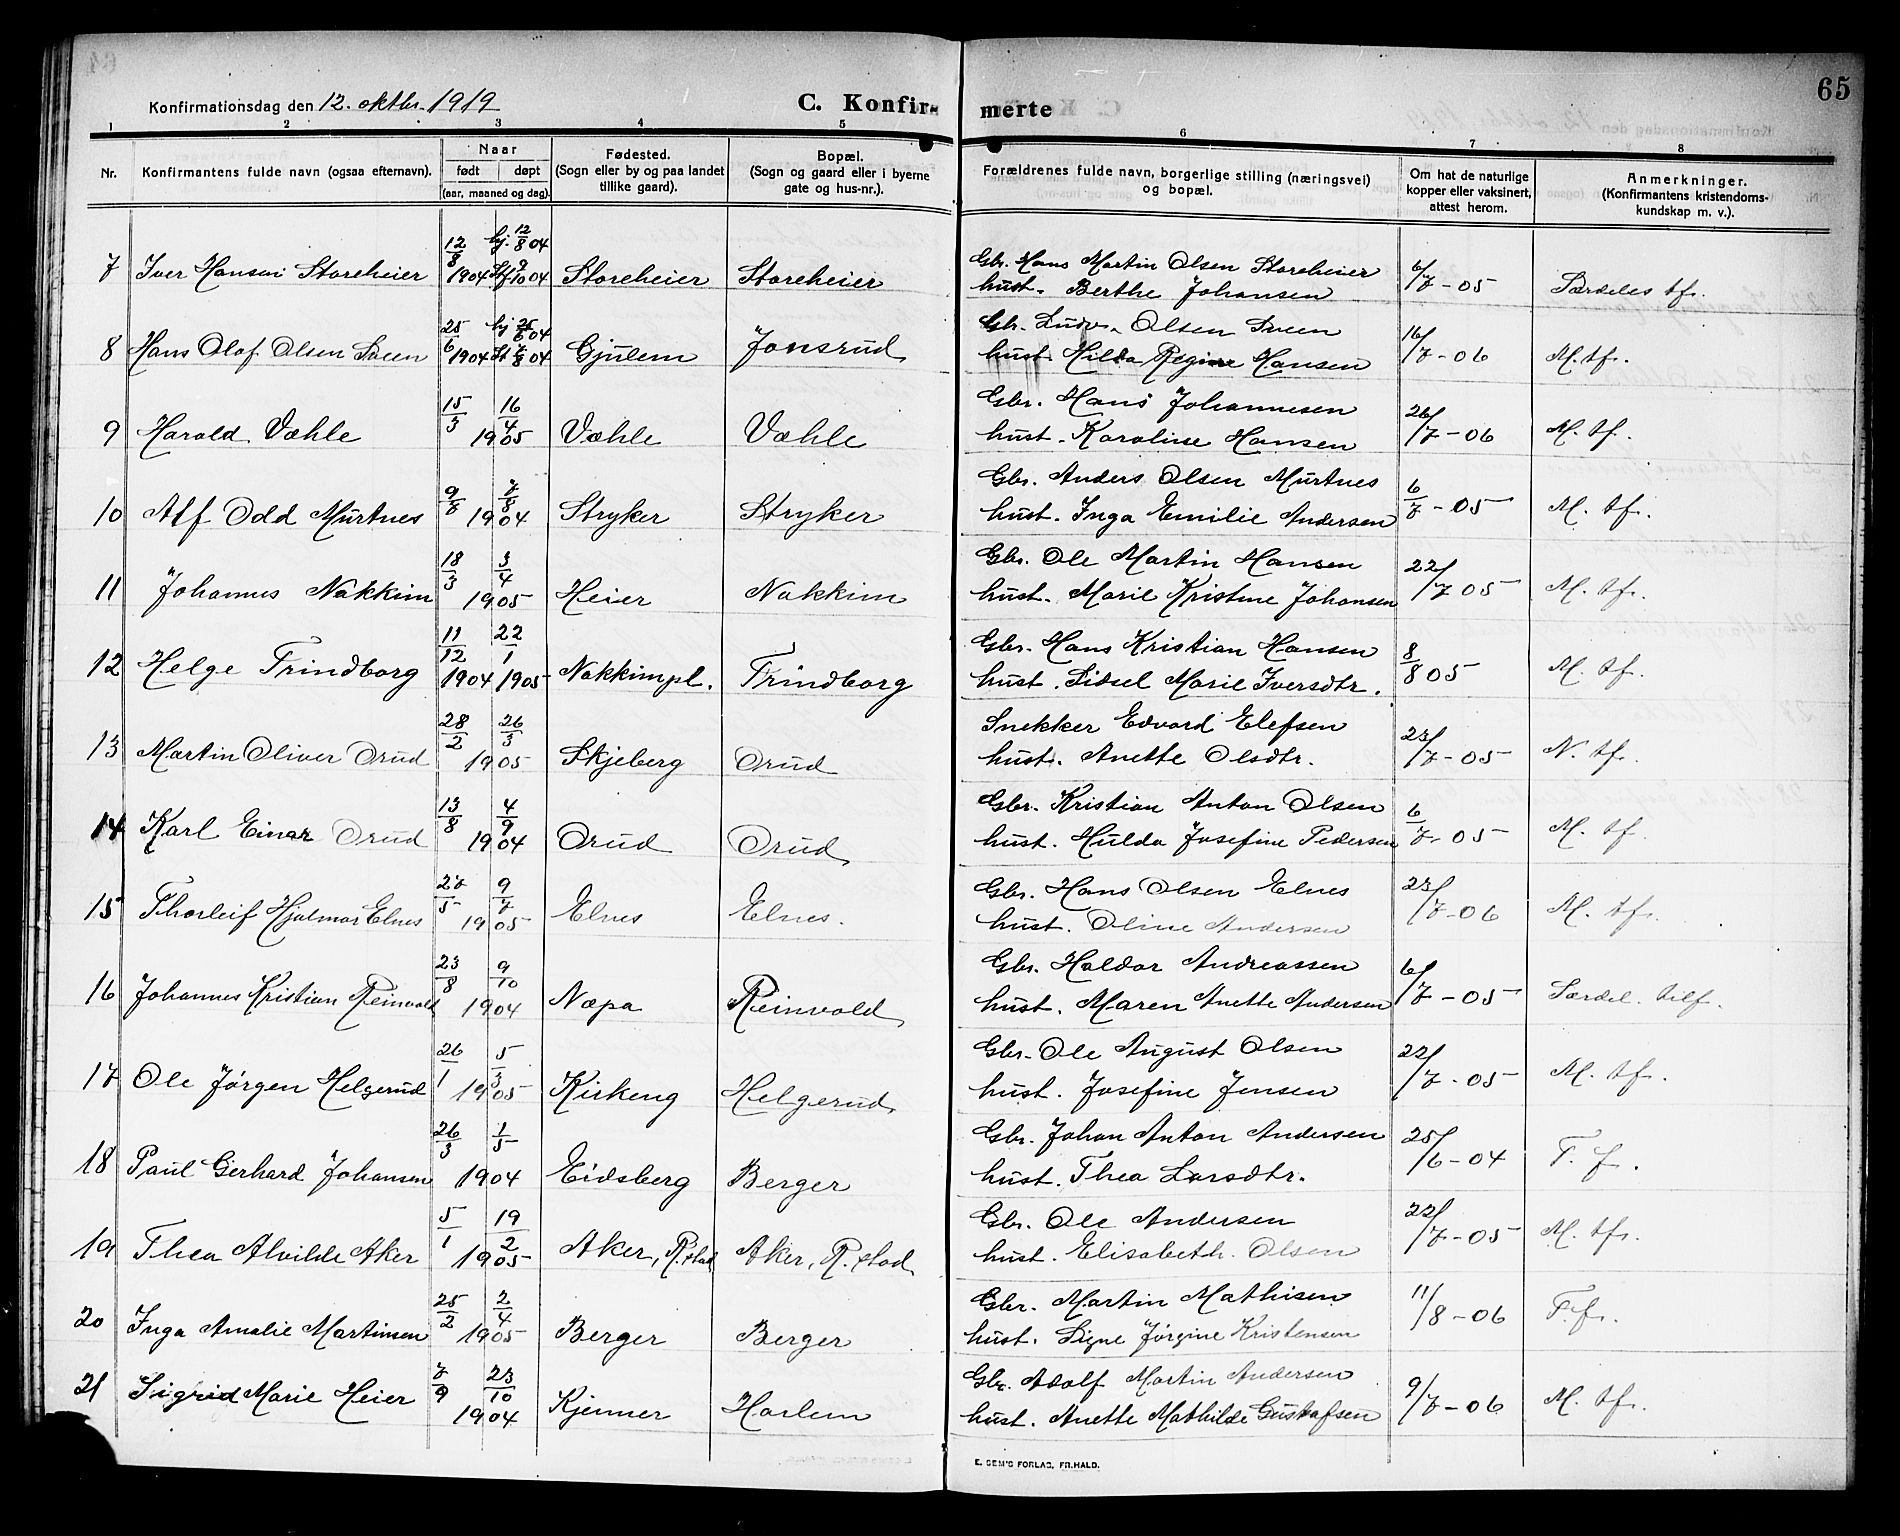 65
Konfirmationsdag den 12. oktbr. 1919
C. Konfirmerte
1 2 3 4 5 6 7 8
Nr. Konfirmantens fulde navn (ogsaa efternavn). Naar født døpt (aar, maaned og dag). Fødested. (Sogn eller by og paa landet tillike gaard). Bopæl. (Sogn og gaard eller i byerne gate og hus-nr.). Forældrenes fulde navn, borgerlige stilling (næringsvei) og bopæl. Om hat de naturlige kopper eller vaksinert, attest herom. Anmerkninger. (Konfirmantens kristendoms-kundskap m. v.).
7 Iver Hansen Storeheier 12/8 1904 hj. 12/8 04 St. 9/10 04 Storeheier Storeheier Gbr. Hans Martin Olsen Storeheier 6/7-05 Særdeles tfr.
hust. Berthe Johansen
8 Hans Olaf Olsen Sveen 25/6 1904 hj 25/6 04 St 7/8 04 Gjulem Jonsrud Gbr. Ludv. Olsen Sveen 16/7-06 M. tfr.
hust. Hilda Regine Hansen
9 Harald Væhle 15/3 16/4 1905 Væhle Væhle Gbr. Hans Johannesen 26/7-06 M. tf.
hust. Karoline Hansen
10 Alf Odd Murtnes 9/7 7/8 1904 Stryker Stryker Gbr. Anders Olsen Murtnes 6/7-05 M. tfr.
hust. Inga Emilie Andersen
11 Johannes Nakkim 18/3 3/4 1905 Heier Nakkim Gbr. Ole Martin Hansen 22/7 05 M. tfr.
hust. Marie Kristine Johansen
12 Helge Trindborg 11/12 1904 22/1 1905 Nakkimpl. Trindborg Gbr. Hans Kristian Hansen 8/8 05 M. tfr.
hust. Sidsel Marie Iversdtr.
13 Martin Oliver Orud 28/2 26/3 1905 Skjeberg Orud Snekker Edvard Elefsen 23/7-05 N. tfr.
hust. Anette Olsdtr.
14 Karl Einar Orud 13/8 4/9 1904 Orud Orud Gbr. Kristian Anton Olsen 6/7-05 M. tf.
hust. Hulda Josefine Pedersen
15 Thorleif Hjalmar Elnes 27/5 9/7 1905 Elnes Elnes. Gbr. Hans Olsen Elnes 23/7-06 M. tfr.
hust. Oline Andersen
16 Johannes Kristian Reinvold 23/8 9/10 1904 Næpa Reinvold Gbr. Haldor Andreassen 6/7-05 Særdel. tilf.
hust. Maren Anette Andersen
17 Ole Jørgen Helgerud 26/1 5/3 1905 Kirkeng Helgerud Gbr. Ole August Olsen 22/7-05 M. tfr.
hust. Josefine Jensen
18 Paul Gerhard Johansen 26/3 1/5 1904 Eidsberg Berger Gbr. Johan Anton Andersen 25/6-04 T. f.
hust. Thea Larsdtr.
19 Thea Alvilde Aker 5/1 19/2 1905 Aker, R.stad Aker, R.stad Gbr. Ole Andersen 22/7-05 M. tfr.
hust. Elisabeth Olsen
20 Inga Amalie Martinsen 25/2 2/4 1905 Berger Berger Gbr. Martin Mathisen 11/8-06 T. fr.
hust. Signe Jørgine Kristensen
21 Sigrid Marie Heier 7/9 23/10 1904 Kjenner Harlem Gbr. Adolf Martin Andersen 9/7-06 M. tfr.
hust. Anette Mathilde Gustafsen
E. SEM'S FORLAG, FR.HALD.